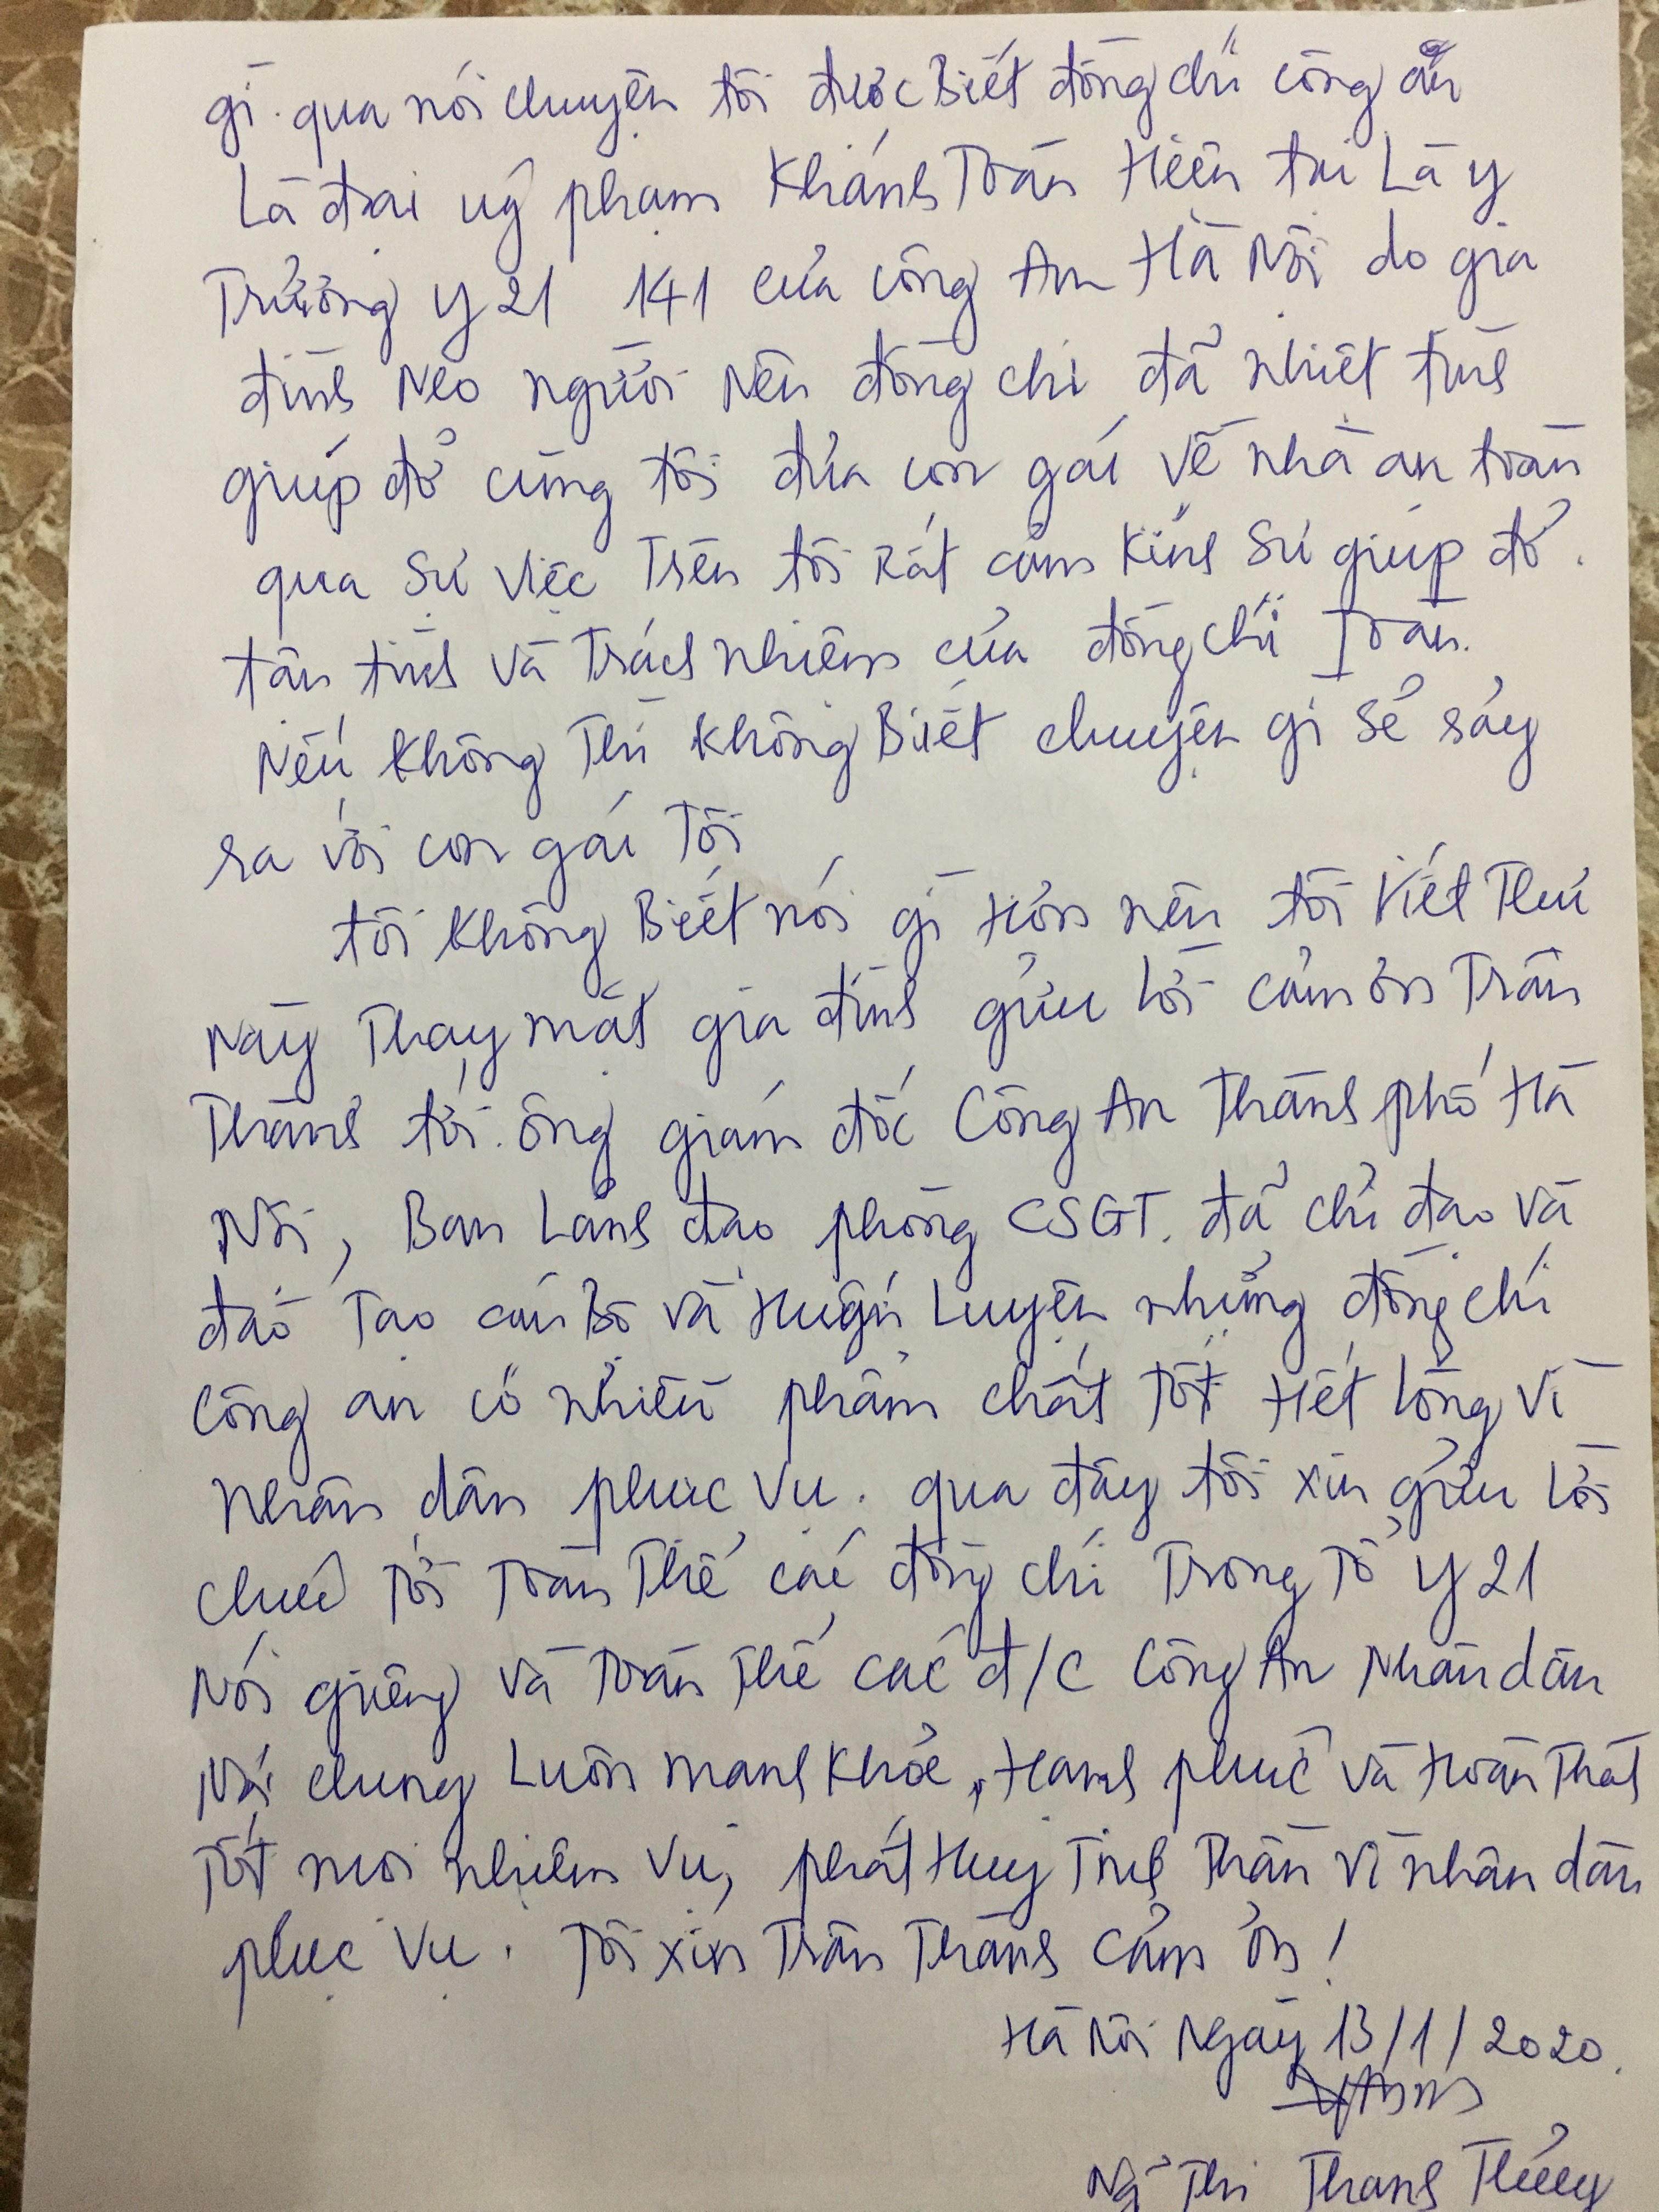 gì. qua nói chuyện tôi được Biết đồng chí công an
Là đại uý phạm Khánh Toàn Hiện tại Là y
Trưởng y 21 141 của công An Hà Nội do gia
đình Neo người Nên đồng chí đã nhiệt tình
giúp đở cùng tôi đưa con gái về nhà an toàn
qua sự việc Trên tôi Rất cảm Kính sự giúp đở.
tận tình và Trách nhiệm của đồng chí Toàn.
Nếu không Thì không Biết chuyện gì sẻ sảy
ra với con gái Tôi
tôi không Biết nói gì Hơn nên tôi Viết Thư
Này Thay mặt gia đình gửu lời cảm ơn Trân
Thành tới. ông giám đốc Công An Thành phố Hà
Nội, Ban Lảnh đạo phòng CSGT. đã chỉ đạo và
đào Tạo cán Bộ và Huấn Luyện những đồng chí
công an có nhiều phẩm chất Tốt Hết lòng vì
Nhân dân phục vụ. qua đây tôi xin gửu lời
chúc tới Toàn Thể các đồng chí Trong Tổ y 21
Nói giêng và Toàn Thể các đ/c Công An Nhân dân
Nói chung Luôn mạnh khỏe, Hạnh phúc và Hoàn Thành
Tốt mọi nhiệm vụ, phát Huy Tinh Thần vì nhân dân
phục vụ. Tôi xin Trân Thành cảm ơn!
Hà Nội Ngày 13/1/2020.
Ngô Thị Thanh Thủy